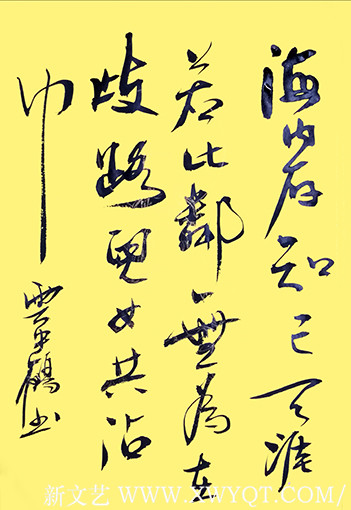 海内存知己天涯
若比鄰無為在
歧路兒女共沾
巾
雲鶴书
新文艺 WWW.XWYQT.COM/